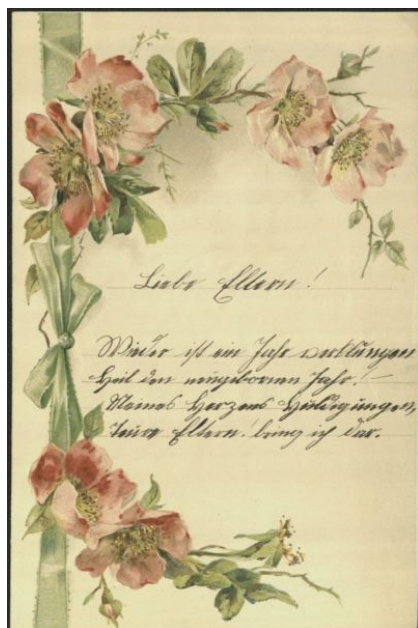 Liebe Eltern!
Wieder ist ein Jahr verklungen
Heil den neugebornen Jahr!
Meines Herzens Huldigungen,
Teure Eltern! bring ich dar.